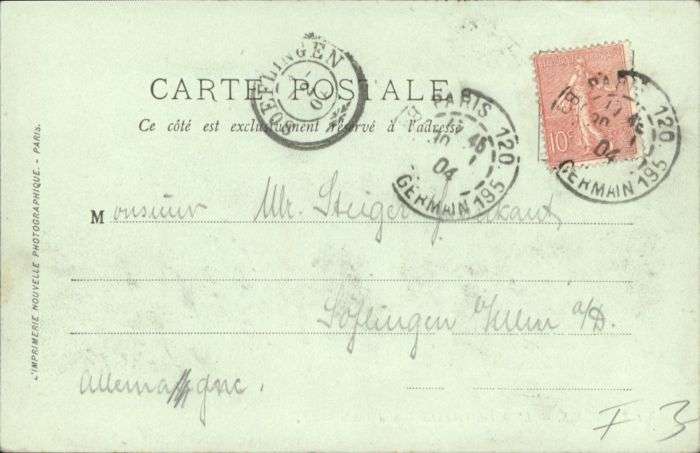 CARTE POSTALE
Ce côté est exclusivement réservé à l'adresse
SOEFLINGEN
PARIS 120
17 45
04
GERMAIN 195
PARIS 120
17 45
04
GERMAIN 195
10c
Monsieur Mr. Steiger
Söflingen a/Ulm a/D.
Allemagne.
F 3
L'IMPRIMERIE NOUVELLE PHOTOGRAPHIQUE. - PARIS.